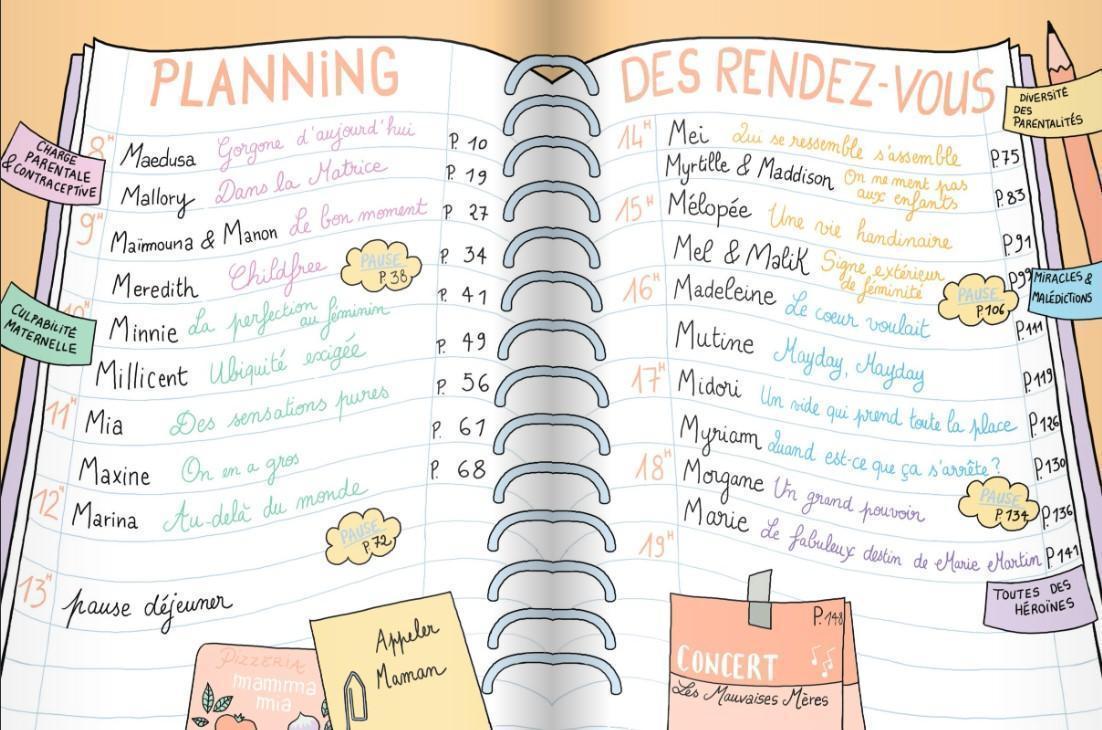 PLANNiNG
CHARGE
PARENTALE
& CONTRACEPTIVE
8H
Maedusa Gorgone d'aujourd'hui P. 10
Mallory Dans la Matrice P. 19
9H
Maïmouna & Manon Le bon moment P. 27
Meredith Childfree P. 34
PAUSE
P.38
CULPABILITÉ
MATERNELLE
10H
Minnie La perfection P. 41
au féminin
Millicent Ubiquité exigée P. 49
11H
Mia Des sensations pures P. 56
P. 61
Maxine On en a gros P. 68
12H
Marina Au-delà du monde
PAUSE
P.72
13H
pause déjeuner
PIZZERIA
mamma
mia
Appeler
Maman
DES RENDEZ-VOUS
DIVERSITÉ
DES
PARENTALITÉS
14H
Mei Qui se ressemble s'assemble P.75
Myrtille & Maddison On ne ment pas P.83
aux enfants
15H
Mélopée Une vie handinaire P.91
Mel & Malik Signe extérieur P.99
de féminité
PAUSE
P.106
MIRACLES &
MALÉDICTIONS
16H
Madeleine Le coeur voulait P.111
Mutine Mayday, Mayday P.119
17H
Midori Un vide qui prend toute la place P.126
Myriam Quand est-ce que ça s'arrête? P.130
PAUSE
P.134
18H
Morgane Un grand pouvoir P.136
Marie Le fabuleux destin de Marie Martin P.141
19H
TOUTES DES
HÉROÏNES
P.148
CONCERT
Les Mauvaises Mères